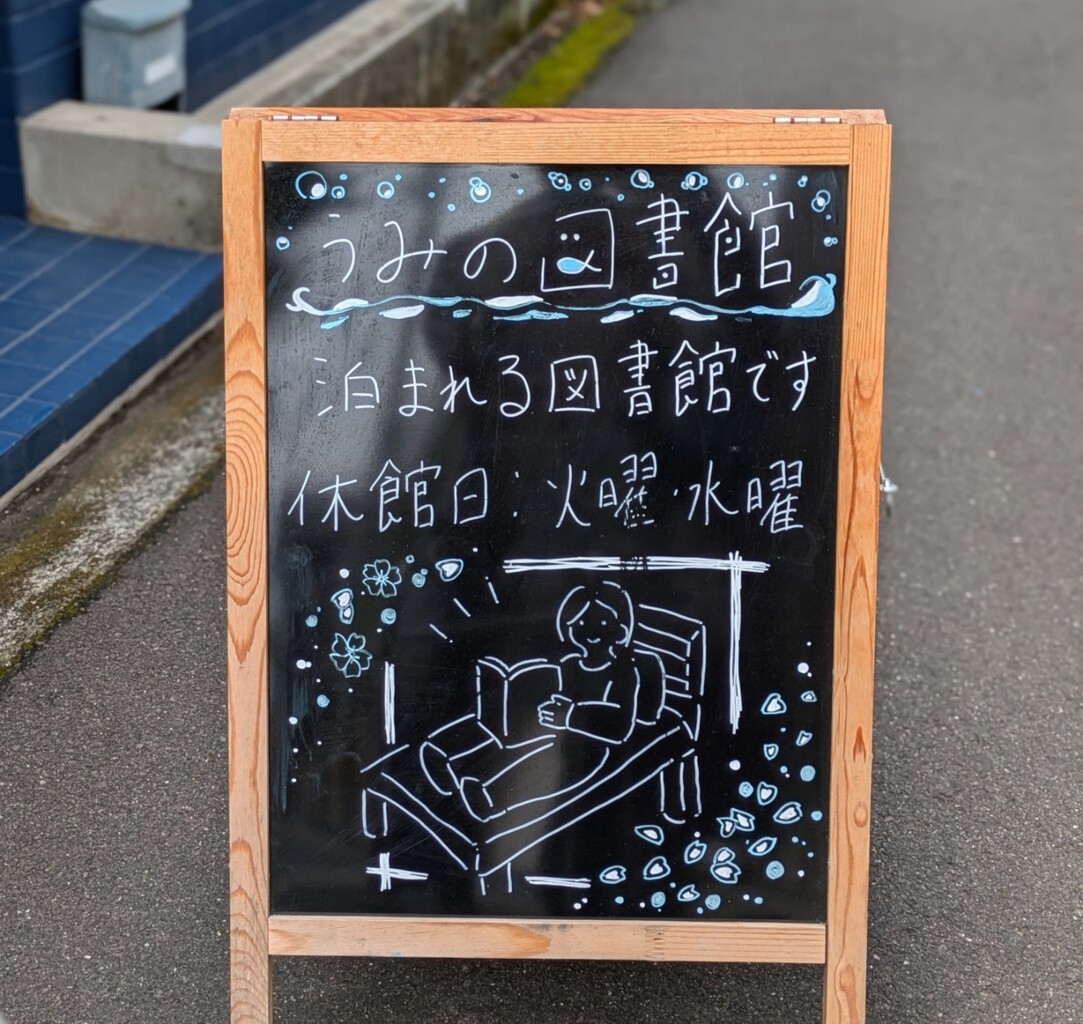 うみの図書館
泊まれる図書館です
休館日:火曜・水曜